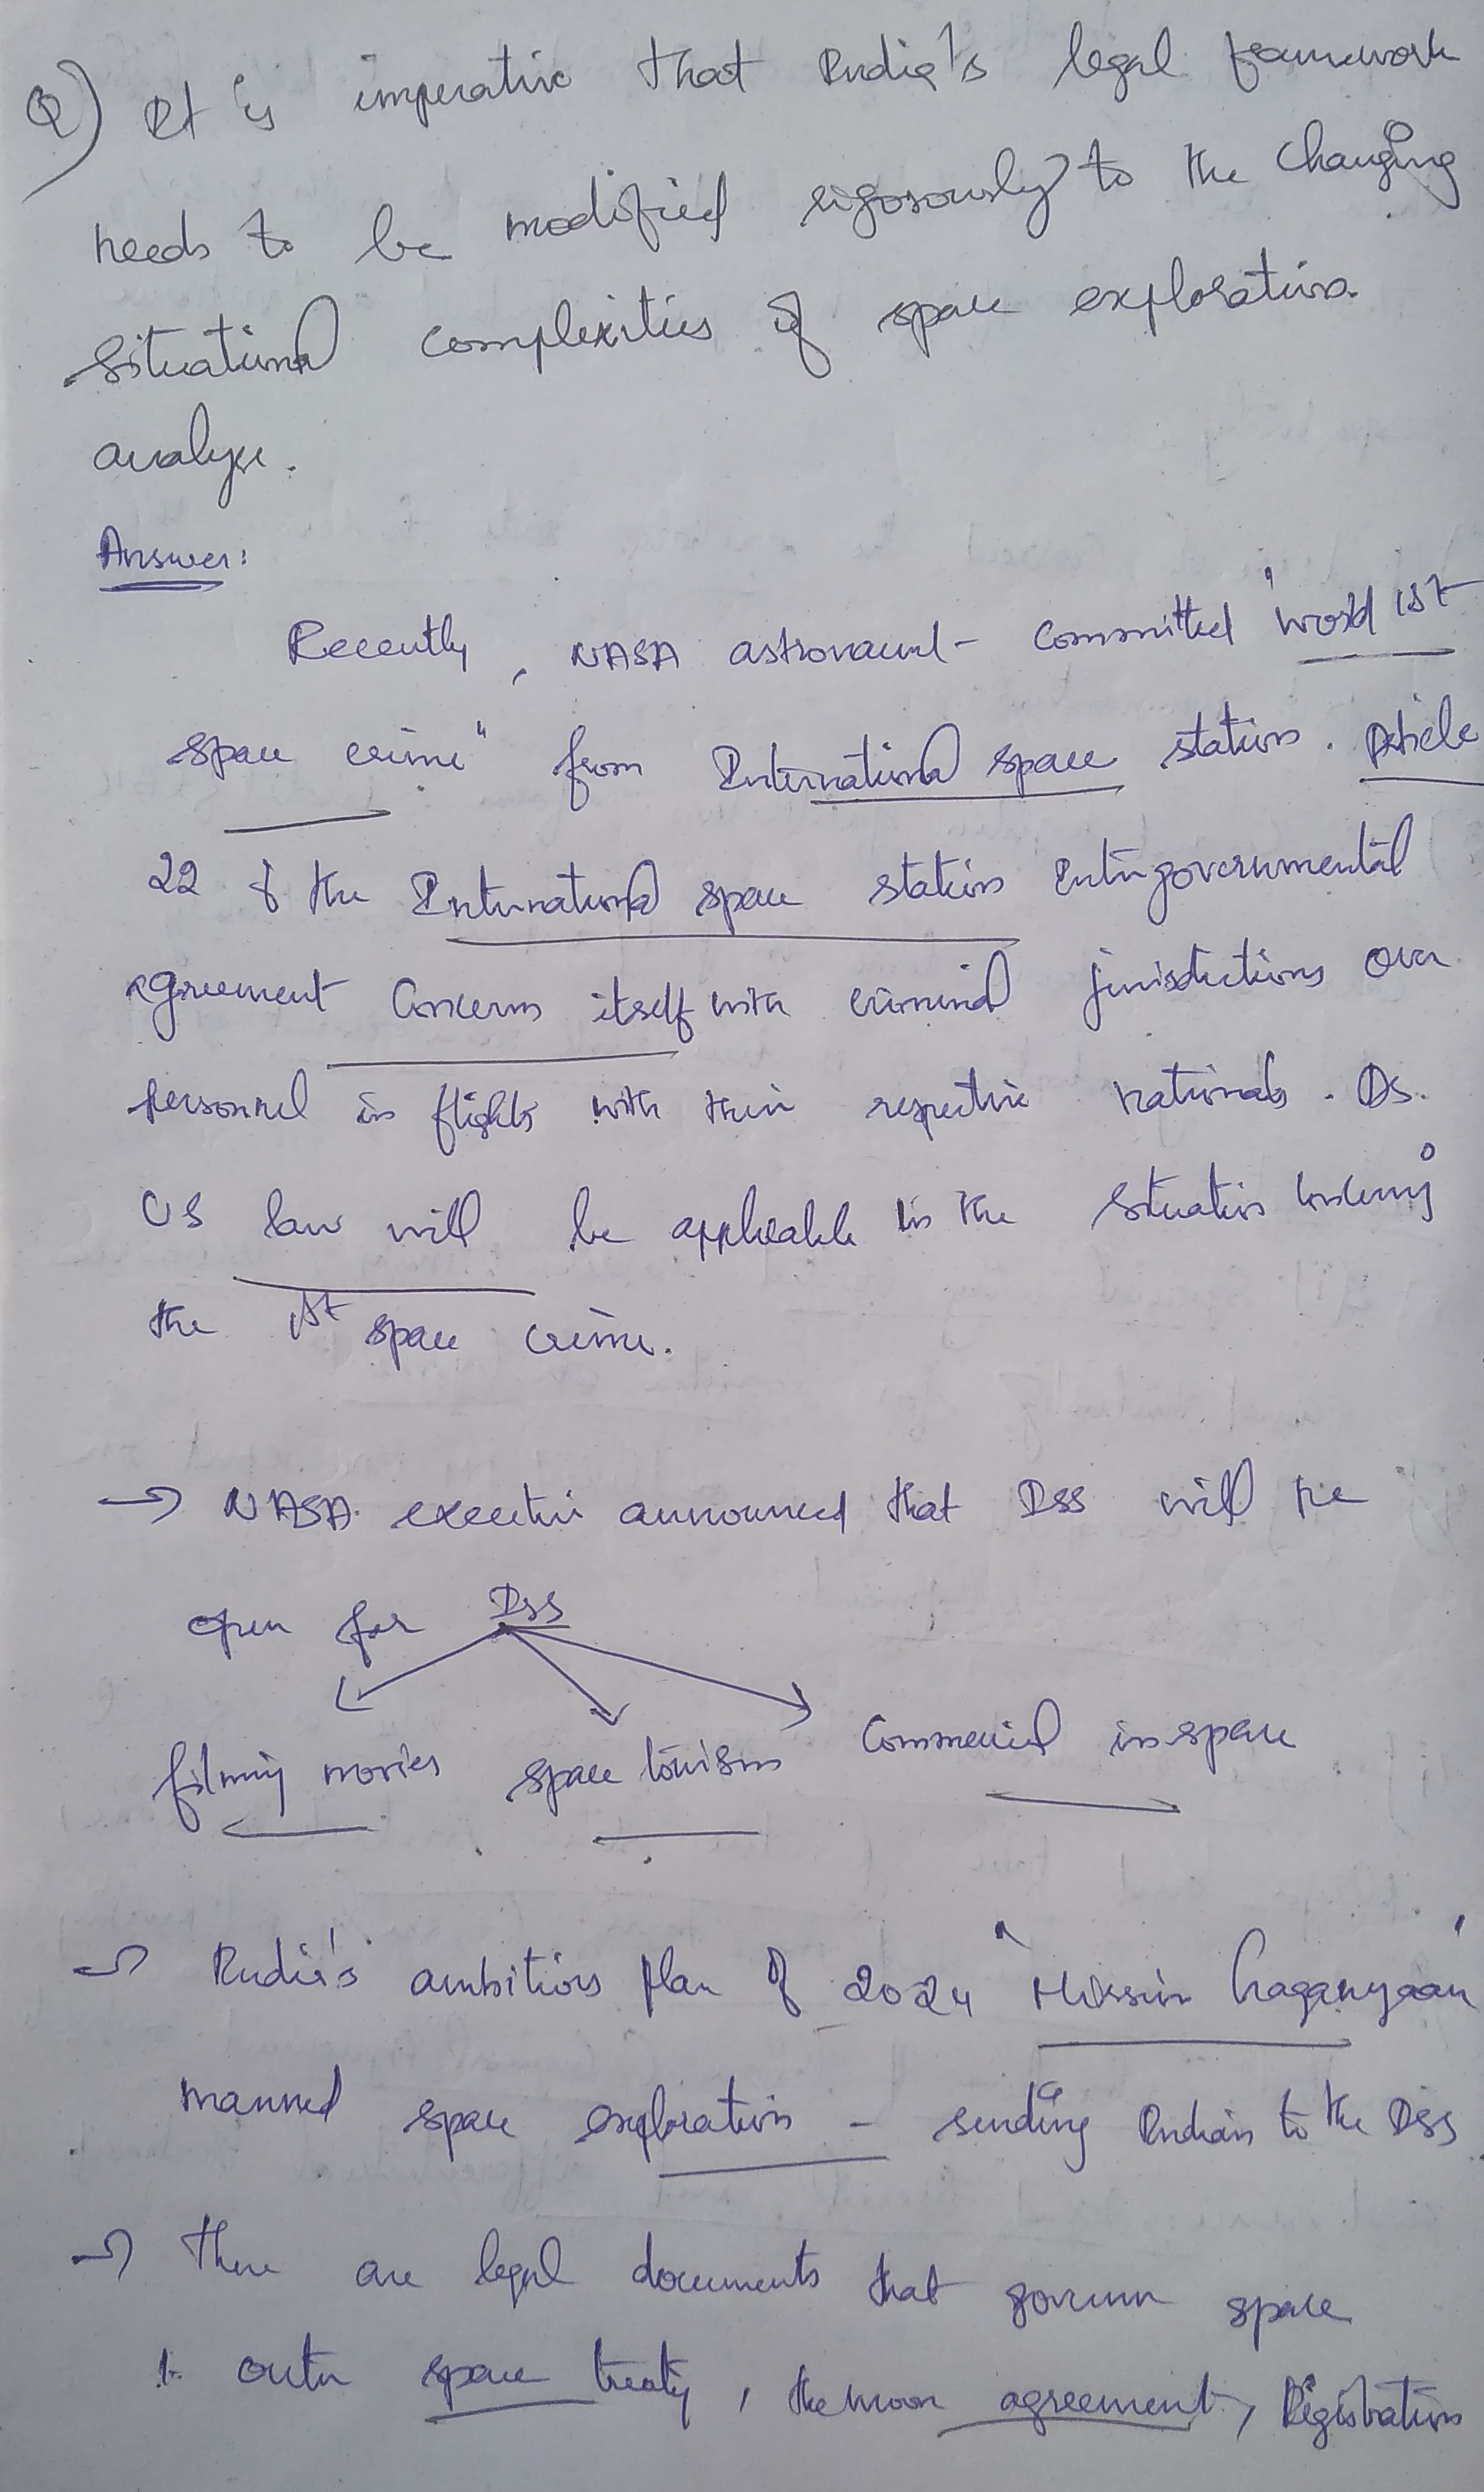 Q) It is imperative that India's legal framework
needs to be modified rigorously to the changing
situational complexities of space exploration.
analyse.
Answer:
Recently, NASA astronaut committed "world 1st
space crime" from International space station. Article
22 of the International space station Intergovernmental
agreement concerns itself with criminal jurisdictions over
personnel in flights with their respective nationals. As
US law will be applicable in the situation
the 1st space crime.
→ NASA executive announced that ISS will be
open for ISS
filming movies space tourism Commercial in space
→ India's ambitious plan of 2024 "Mission Gaganyaan"
manned space exploration - sending Indian to the ISS
→ There are legal documents that govern space
1. outer space treaty, the moon agreement, Registration